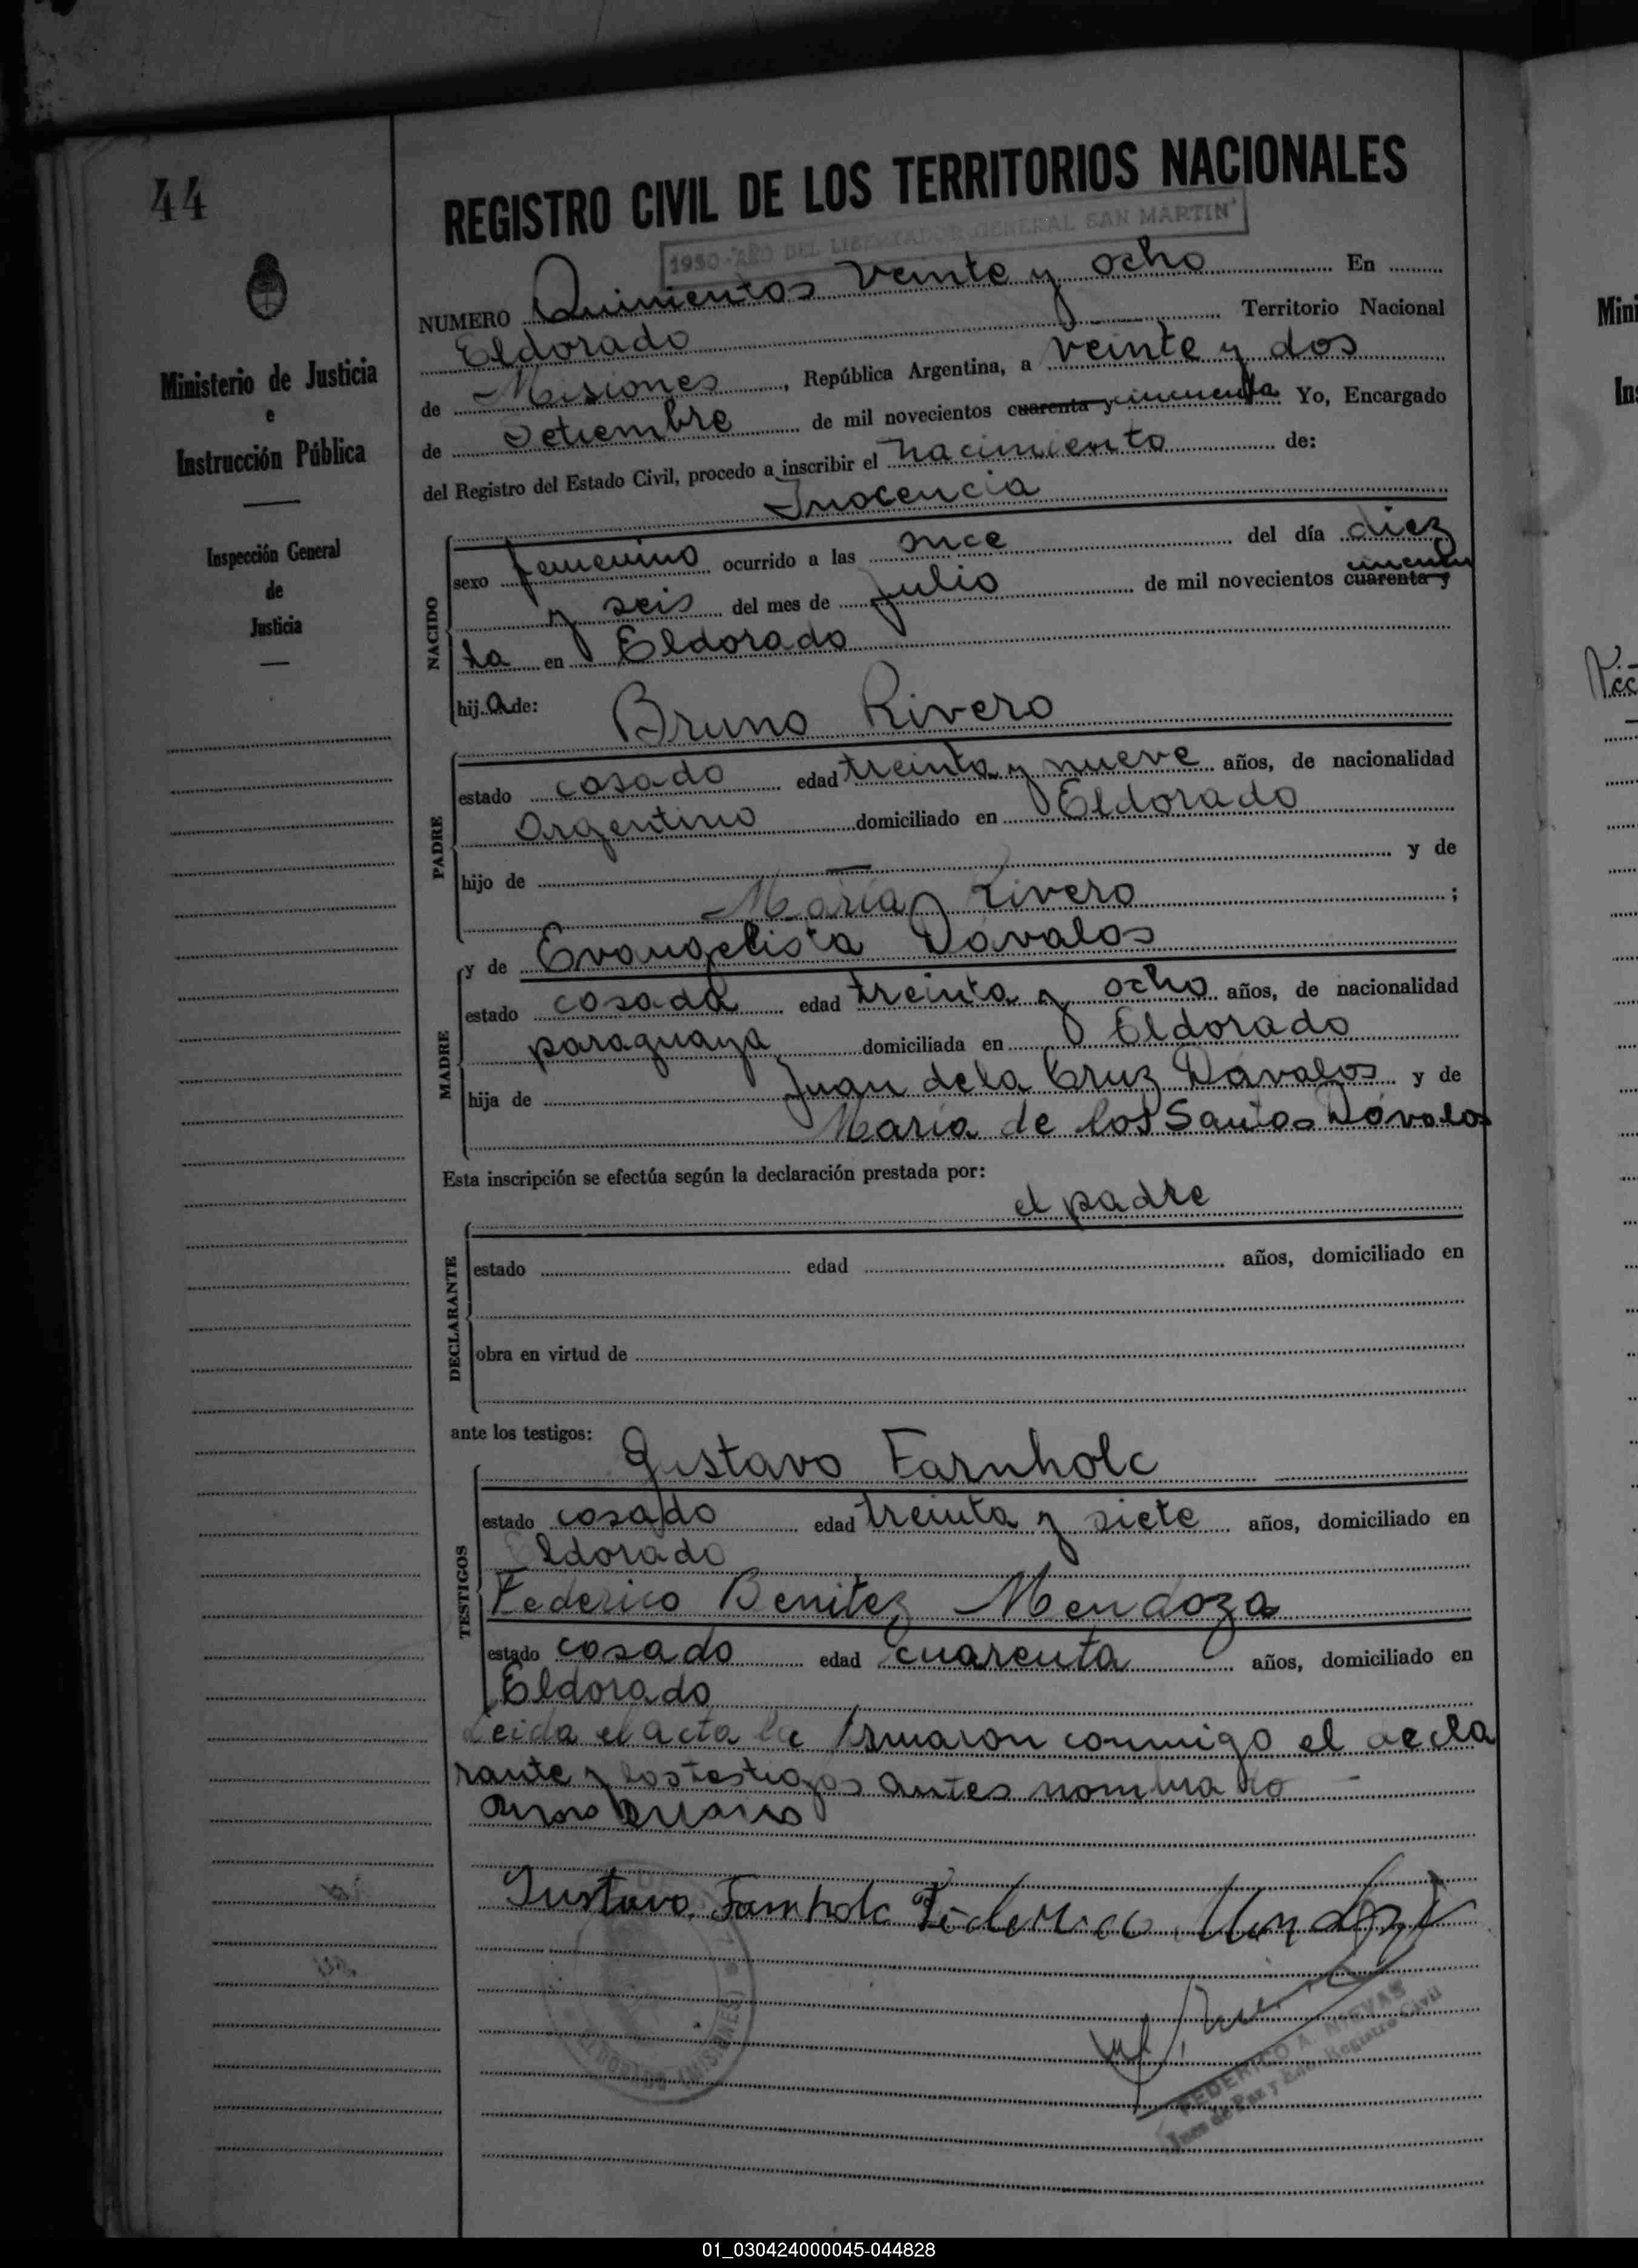 44
REGISTRO CIVIL DE LOS TERRITORIOS NACIONALES
1950-AÑO DEL LIBERTADOR GENERAL SAN MARTIN
NUMERO Quinientos veinte y ocho En
Eldorado Territorio Nacional
de Misiones, República Argentina, a veinte y dos
de Setiembre de mil novecientos cuarenta y cincuenta Yo, Encargado
del Registro del Estado Civil, procedo a inscribir el nacimiento de:
Inocencia
Ministerio de Justicia
e
Instrucción Pública
Inspección General
de
Justicia
NACIDO
sexo femenino ocurrido a las once del día diez
y seis del mes de julio de mil novecientos cuarenta y cincuen
ta en Eldorado
hij.a de: Bruno Rivero
PADRE
estado casado edad treinta y nueve años, de nacionalidad
Argentino domiciliado en Eldorado
hijo de — y de
María Rivero ;
MADRE
y de Evangelista Dávalos
estado casada edad treinta y ocho años, de nacionalidad
paraguaya domiciliada en Eldorado
hija de Juan de la Cruz Dávalos y de
María de los Santos Dávalos
Esta inscripción se efectúa según la declaración prestada por:
el padre
DECLARANTE
estado edad años, domiciliado en
obra en virtud de
ante los testigos:
Gustavo Farnholc
TESTIGOS
estado casado edad treinta y siete años, domiciliado en
Eldorado
Federico Benitez Mendoza
estado casado edad cuarenta años, domiciliado en
Eldorado
Leida el acta la firmaron conmigo el decla
rante y los testigos antes nombrado —
Gustavo Farnholc Federico Mendoza
ELDORADO (MISIONES)
FEDERICO A. NIEVAS
Juez de Paz y Enc. Registro Civil
01_030424000045-044828